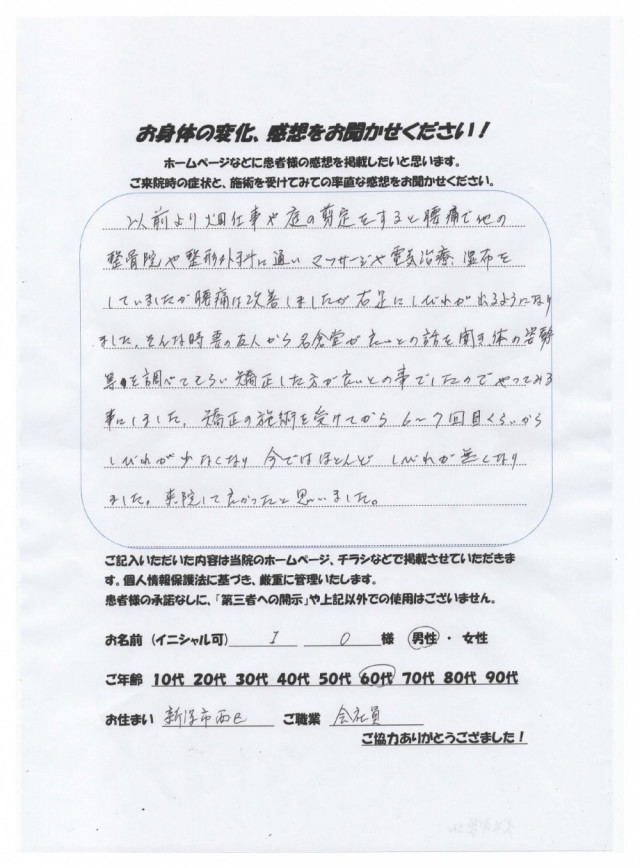 お身体の変化、感想をお聞かせください！
ホームページなどに患者様の感想を掲載したいと思います。
ご来院時の症状と、施術を受けてみての率直な感想をお聞かせください。
以前より畑仕事や庭の剪定をすると腰痛で他の
整骨院や整形外科に通い マッサージや電気治療、湿布を
していましたが腰痛は改善しましたが右足にしびれが出るようになり
ました。そんな時妻の友人から名倉堂が良いとの話を聞き体の姿勢
等を調べてもらい矯正した方が良いとの事でしたのでやってみる
事にしました。矯正の施術を受けてから 6〜7回目くらいから
しびれが少なくなり 今ではほとんど しびれが無くなり
ました。来院して良かったと思いました。
ご記入いただいた内容は当院のホームページ、チラシなどで掲載させていただきま
す。個人情報保護法に基づき、厳重に管理いたします。
患者様の承諾なしに、「第三者への開示」や上記以外での使用はございません。
お名前（イニシャル可） I O 様 男性 ・ 女性
ご年齢 10代 20代 30代 40代 50代 60代 70代 80代 90代
お住まい 新潟市西区 ご職業 会社員
ご協力ありがとうござました！